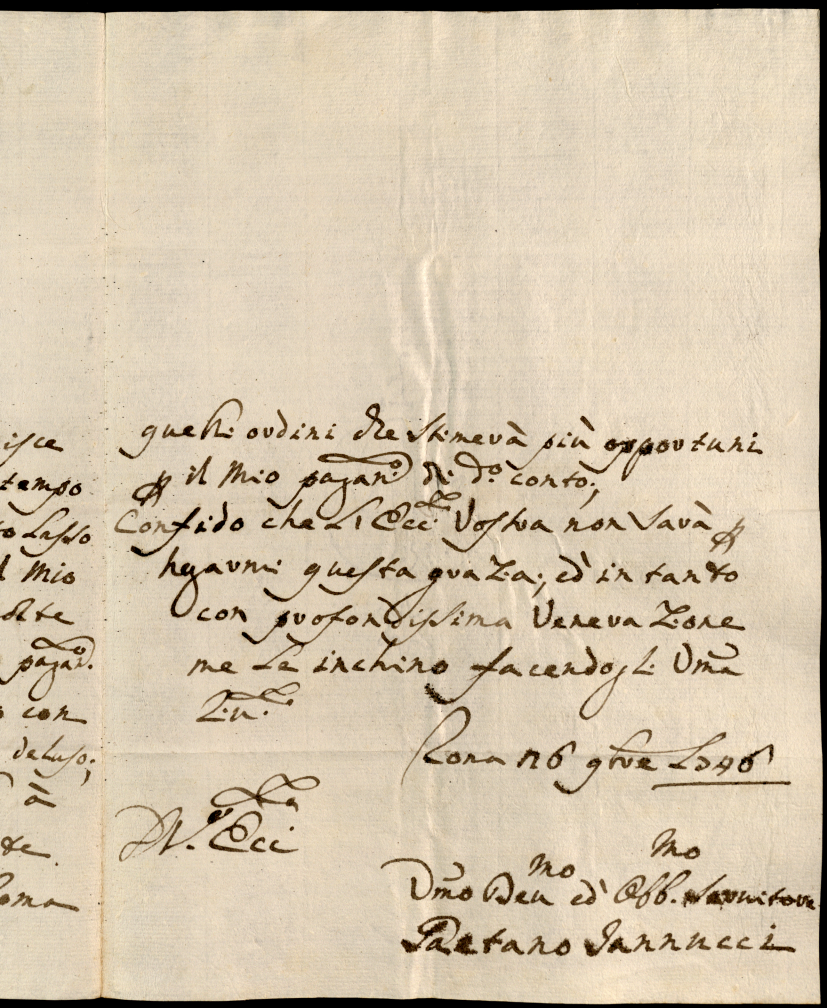 isce
tempo
to lasso
l Mio
olte
pagam.to
o con
deluso;
à
te
Roma
quelli ordini che stimerà più opportuni
p il Mio pagam.to di d.o conto;
Confido che L'Ecc.za Vostra non Sarà p
negarmi questa grazia; ed in tanto
con profondissima Venerazione
me Le inchino facendogli Uma
Roma 26 9bre 1746
D V. Ecc.za
Vmo Deu mo ed Obb. mo Servitore
Gaetano Iannucci